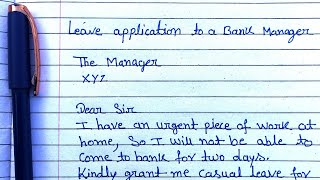 Leave application to a Bank Manager
The Manager
XYZ
Dear Sir
I have an urgent piece of work at
home, So I will not be able to
come to bank for two days.
Kindly grant me casual leave for